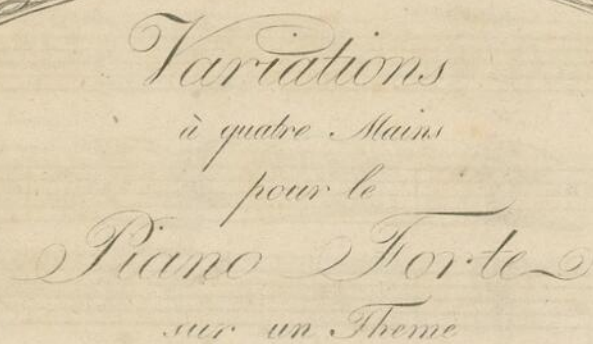 Variations
à quatre Mains
pour le
Piano Forte
sur un Theme